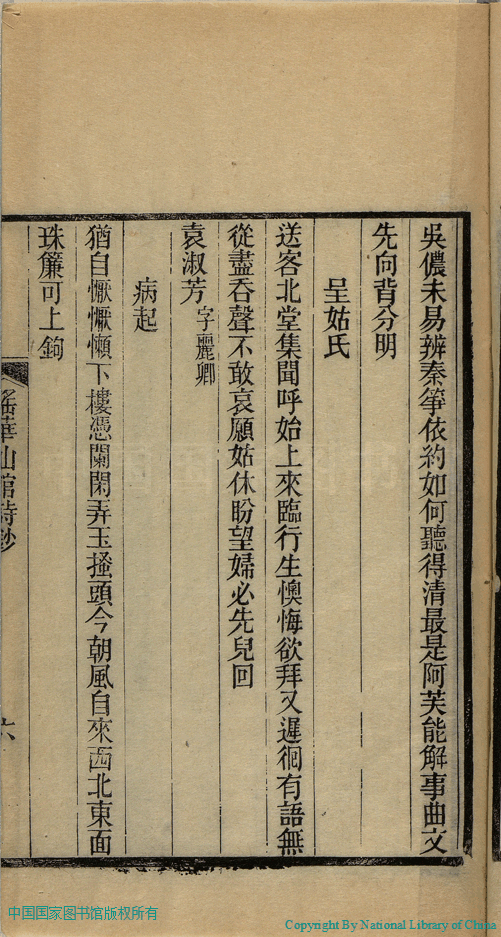 吳儂未易辨秦箏依約如何聽得清最是阿芙能解事曲文
先向背分明
呈姑氏
送客北堂集聞呼始上來臨行生懊悔欲拜又遲徊有語無
從盡吞聲不敢哀願姑休盼望婦必先兒回
袁淑芳字麗卿
病起
猶自懨懨懶下樓憑闌閑弄玉搔頭今朝風自來西北東面
珠簾可上鉤
華山館詩鈔
六
中国国家图书馆版权所有
Copyright By National Library of China